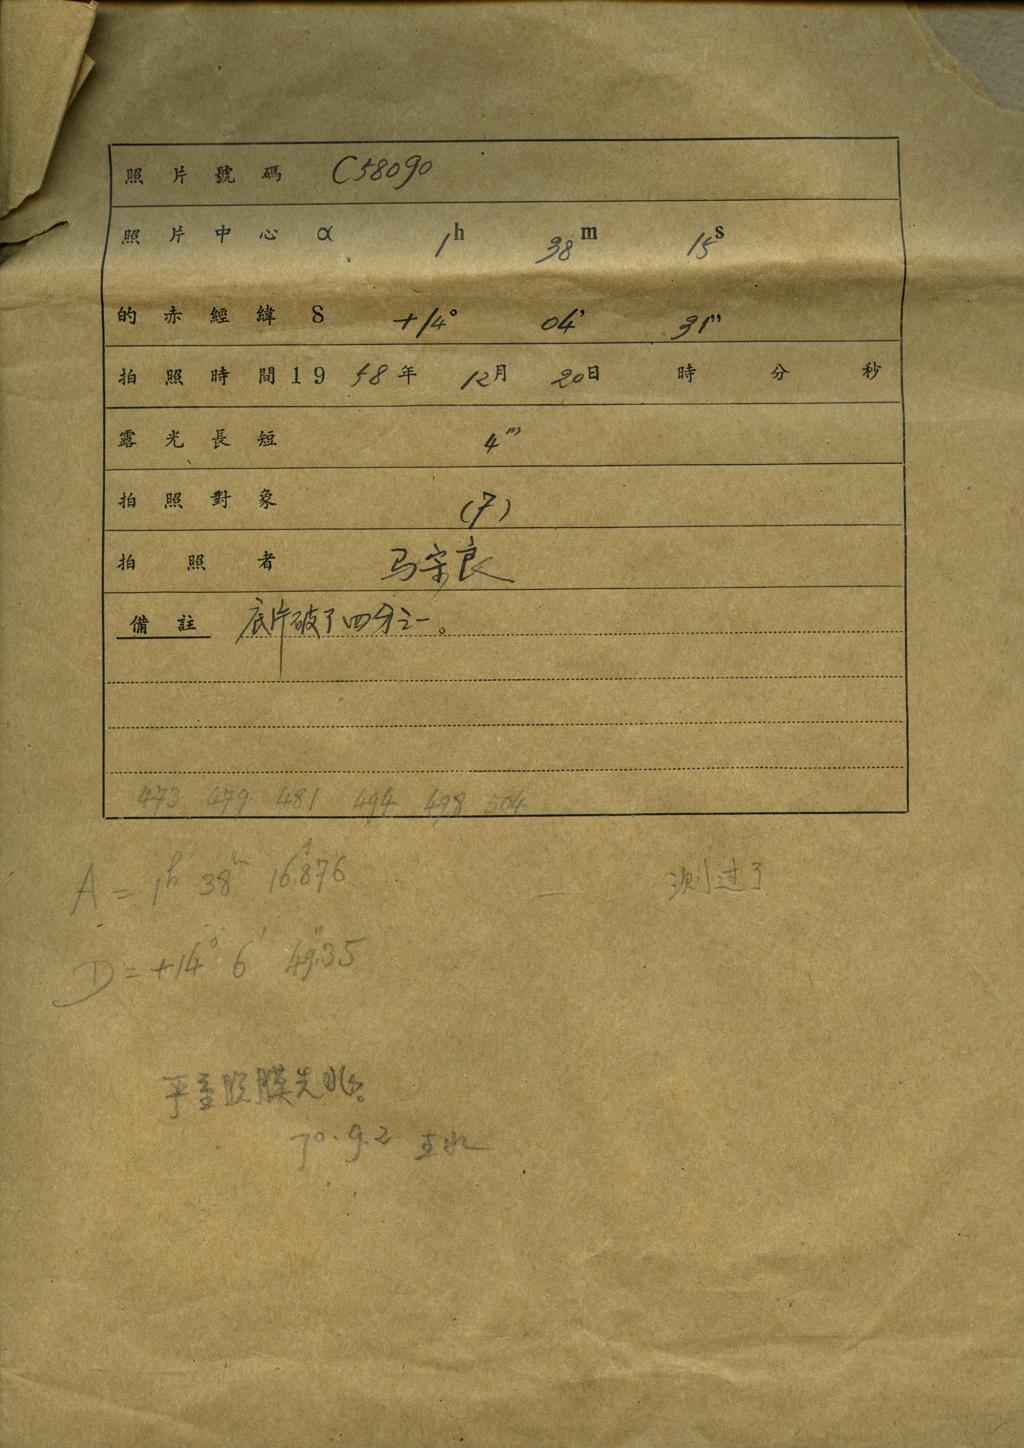 照片號碼 C58090
照片中心 α 1h 38m 15s
的赤經緯 δ +14° 04' 31"
拍照時間 19 58年 12月 20日 時 分 秒
露光長短 4m
拍照對象 (7)
拍照者 马宗良
備註 底片破了四分之一。
473 479 481 494 498 504
A = 1h 38m 16s.876
测过了
D = +14° 6' 49".35
膜先
70.9.2